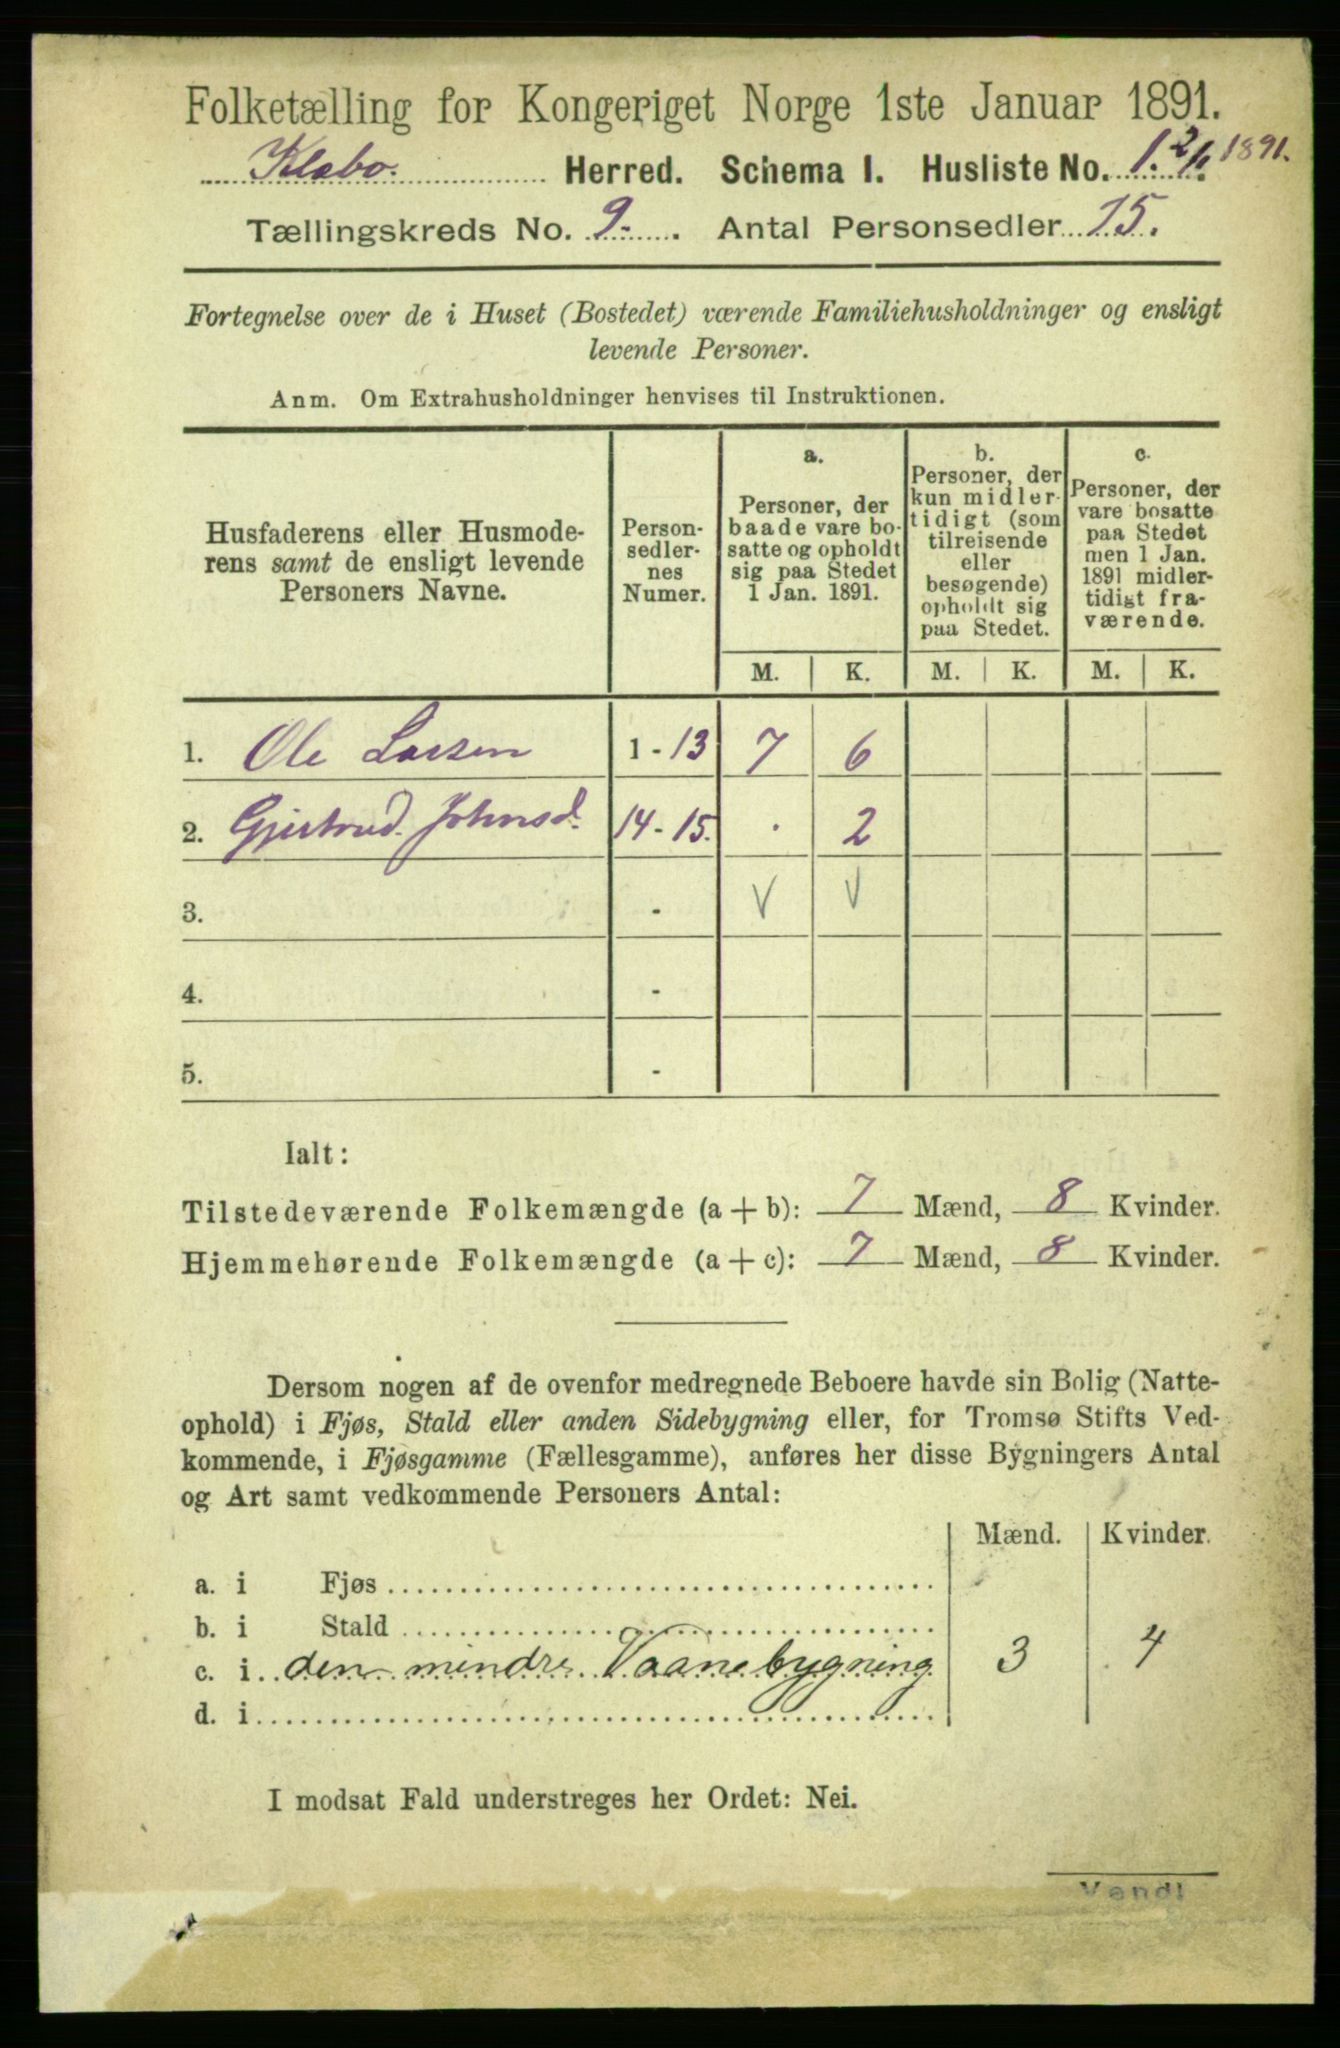 Folketælling for Kongeriget Norge 1ste Januar 1891.
Klæbo. Herred. Schema I. Husliste No. 1. 2/1. 1891.
Tællingskreds No. 9. Antal Personsedler 15.
Fortegnelse over de i Huset (Bostedet) værende Familiehusholdninger og ensligt
levende Personer.
Anm. Om Extrahusholdninger henvises til Instruktionen.
Husfaderens eller Husmode-
rens samt de ensligt levende
Personers Navne.
Person-
sedler-
nes
Numer.
a.
Personer, der
baade vare bo-
satte og opholdt
sig paa Stedet
1 Jan. 1891.
b.
Personer, der
kun midler-
tidigt (som
tilreisende
eller
besøgende)
opholdt sig
paa Stedet.
c.
Personer, der
vare bosatte
paa Stedet
men 1 Jan.
1891 midler-
tidigt fra-
værende.
M. K. M. K. M. K.
1. Ole Larsen 1 - 13 7 6
2. Gjertrud. Johnsd. 14 - 15. . 2
3. - V V
4. -
5. -
Ialt:
Tilstedeværende Folkemængde (a + b): 7 Mænd, 8 Kvinder.
Hjemmehørende Folkemængde (a + c): 7 Mænd, 8 Kvinder.
Dersom nogen af de ovenfor medregnede Beboere havde sin Bolig (Natte-
ophold) i Fjøs, Stald eller anden Sidebygning eller, for Tromsø Stifts Ved-
kommende, i Fjøsgamme (Fællesgamme), anføres her disse Bygningers Antal
og Art samt vedkommende Personers Antal:
Mænd. Kvinder.
a. i Fjøs
b. i Stald
c. i den mindre Vaanebygning 3 4
d. i
I modsat Fald understreges her Ordet: Nei.
Vend!